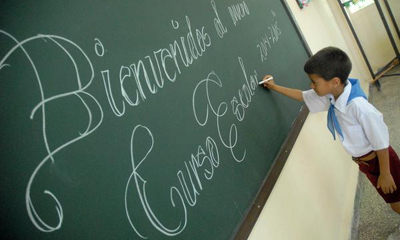 Bienvenidos al nuevo
Curso Escolar
2014-2015